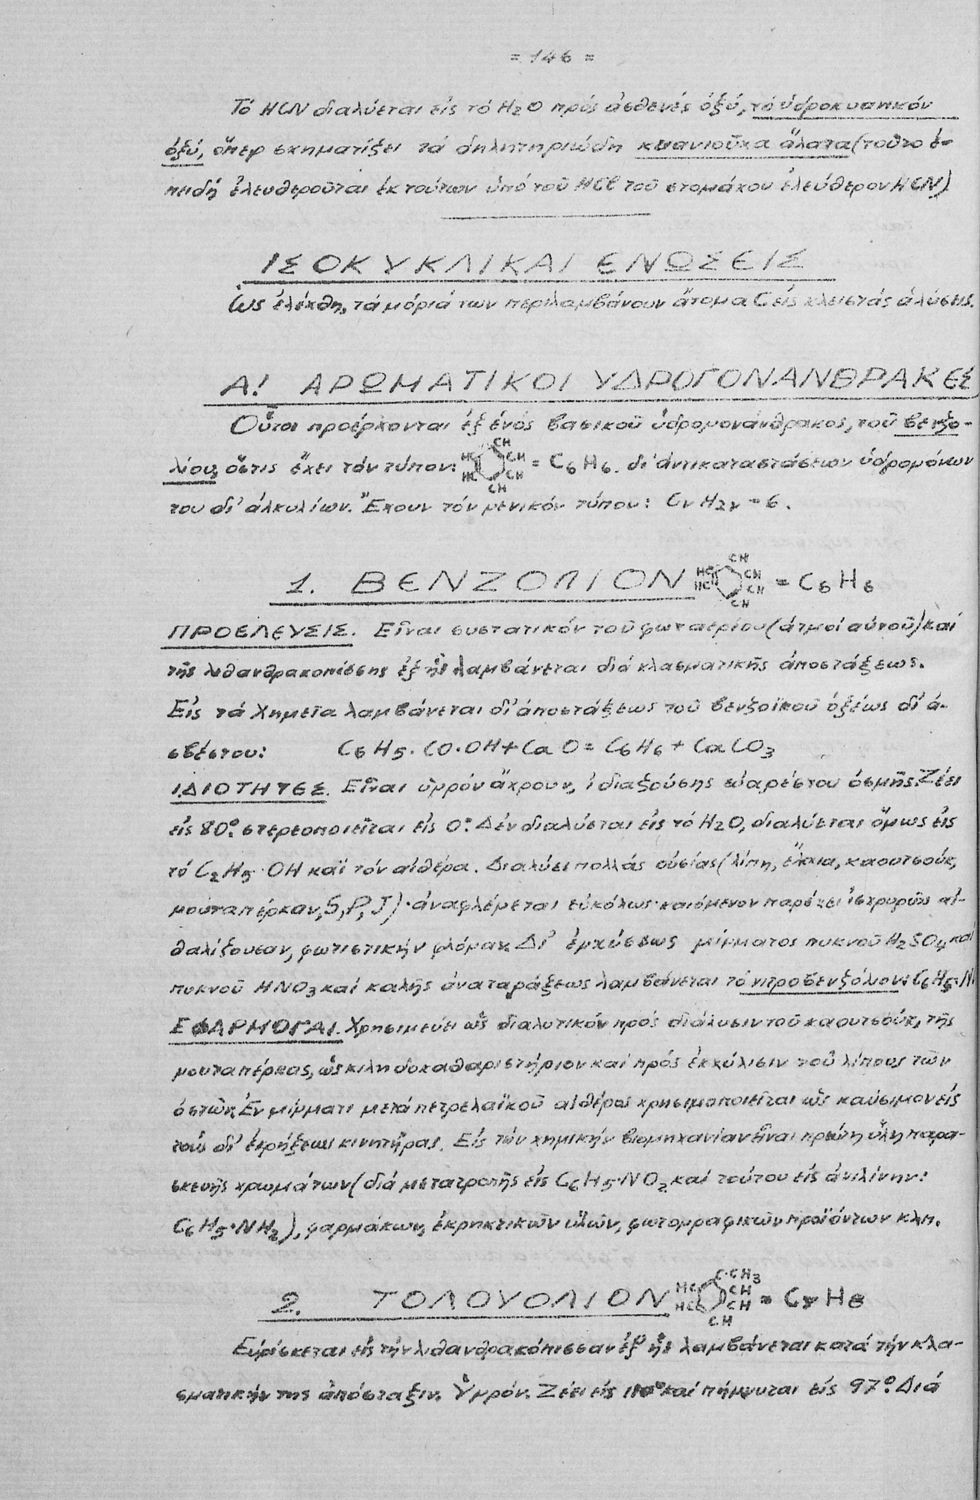 = 146 =
Τό HCN διαλύεται εἰς τό H₂O πρός ἀσθενές ὀξύ, τό ὑδροκυανικόν
ὀξύ, ὅπερ σχηματίζει τά δηλητηριώδη κυανιοῦχα ἅλατα (τοῦτο ἐ-
πειδή ἐλευθεροῦται ἐκ τούτων ὑπό τοῦ HCl τοῦ στομάχου ἐλεύθερον HCN)
ΙΣΟΚΥΚΛΙΚΑΙ ΕΝΩΣΕΙΣ
Ὡς ἐλέχθη, τά μόριά των περιλαμβάνουν ἄτομα C εἰς κλειστάς ἁλύσεις.
Α! ΑΡΩΜΑΤΙΚΟΙ ΥΔΡΟΓΟΝΑΝΘΡΑΚΕΣ
Οὗτοι προέρχονται ἐξ ἑνός βασικοῦ ὑδρογονάνθρακος, τοῦ βενζο-
λίου, ὅστις ἔχει τόν τύπον: HC HC CH CH CH CH = C₆H₆. δι' ἀντικαταστάσεων ὑδρογόνων
του δι' ἀλκυλίων. Ἔχουν τόν γενικόν τύπον: CνH₂ν - 6.
1. ΒΕΝΖΟΛΙΟΝ HC HC CH CH CH CH = C₆H₆
ΠΡΟΕΛΕΥΣΙΣ. Εἶναι συστατικόν τοῦ φωταερίου (ἀτμοί αὐτοῦ) καί
τῆς λιθανθρακοπίσσης ἐξ ἧς λαμβάνεται διά κλασματικῆς ἀποστάξεως.
Εἰς τά Χημεῖα λαμβάνεται δι' ἀποστάξεως τοῦ βενζοϊκοῦ ὀξέως δι' ἀ-
σβέστου: C₆H₅.CO.OH + CaO = C₆H₆ + CaCO₃
ΙΔΙΟΤΗΤΕΣ. Εἶναι ὑγρόν ἄχρουν, ἰδιαζούσης εὐαρέστου ὀσμῆς. Ζέει
εἰς 80°. στερεοποιεῖται εἰς 0°. Δέν διαλύεται εἰς τό H₂O, διαλύεται ὅμως εἰς
τό C₂H₅.OH καί τόν αἰθέρα. Διαλύει πολλάς οὐσίας (λίπη, ἔλαια, καουτσούκ,
γουταπέρκαν, S, P, J)· ἀναφλέγεται εὐκόλως· καιόμενον παρέχει ἰσχυρῶς αἰ-
θαλίζουσαν, φωτιστικήν φλόγαν. Δι' ἐγχύσεως μίγματος πυκνοῦ H₂SO₄ καί
πυκνοῦ HNO₃ καί καλῆς ἀναταράξεως λαμβάνεται τό νιτροβενζόλιον: C₆H₅.N
ΕΦΑΡΜΟΓΑΙ. Χρησιμεύει ὡς διαλυτικόν πρός διάλυσιν τοῦ καουτσούκ, τῆς
γουταπέρκας, ὡς κηλιδοκαθαριστήριον καί πρός ἐκχύλισιν τοῦ λίπους τῶν
ὀστῶν. Ἐν μίγματι μετά πετρελαϊκοῦ αἰθέρος χρησιμοποιεῖται ὡς καύσιμον εἰς
τούς δι' ἐκρήξεως κινητῆρας. Εἰς τήν χημικήν βιομηχανίαν εἶναι πρώτη ὕλη παρα-
σκευῆς χρωμάτων (διά μετατροπῆς εἰς C₆H₅.NO₂ καί τούτου εἰς ἀνιλίνην:
C₆H₅.NH₂), φαρμάκων, ἐκρηκτικῶν ὑλῶν, φωτογραφικῶν προϊόντων κλπ.
2. ΤΟΛΟΥΟΛΙΟΝ HC HC C.CH₃ CH CH CH = C₇H₈
Εὑρίσκεται εἰς τήν λιθανθρακόπισσαν ἐξ ἧς λαμβάνεται κατά τήν κλα-
σματικήν της ἀπόσταξιν. Ὑγρόν. Ζέει εἰς 110° καί πήγνυται εἰς 97°. Διά